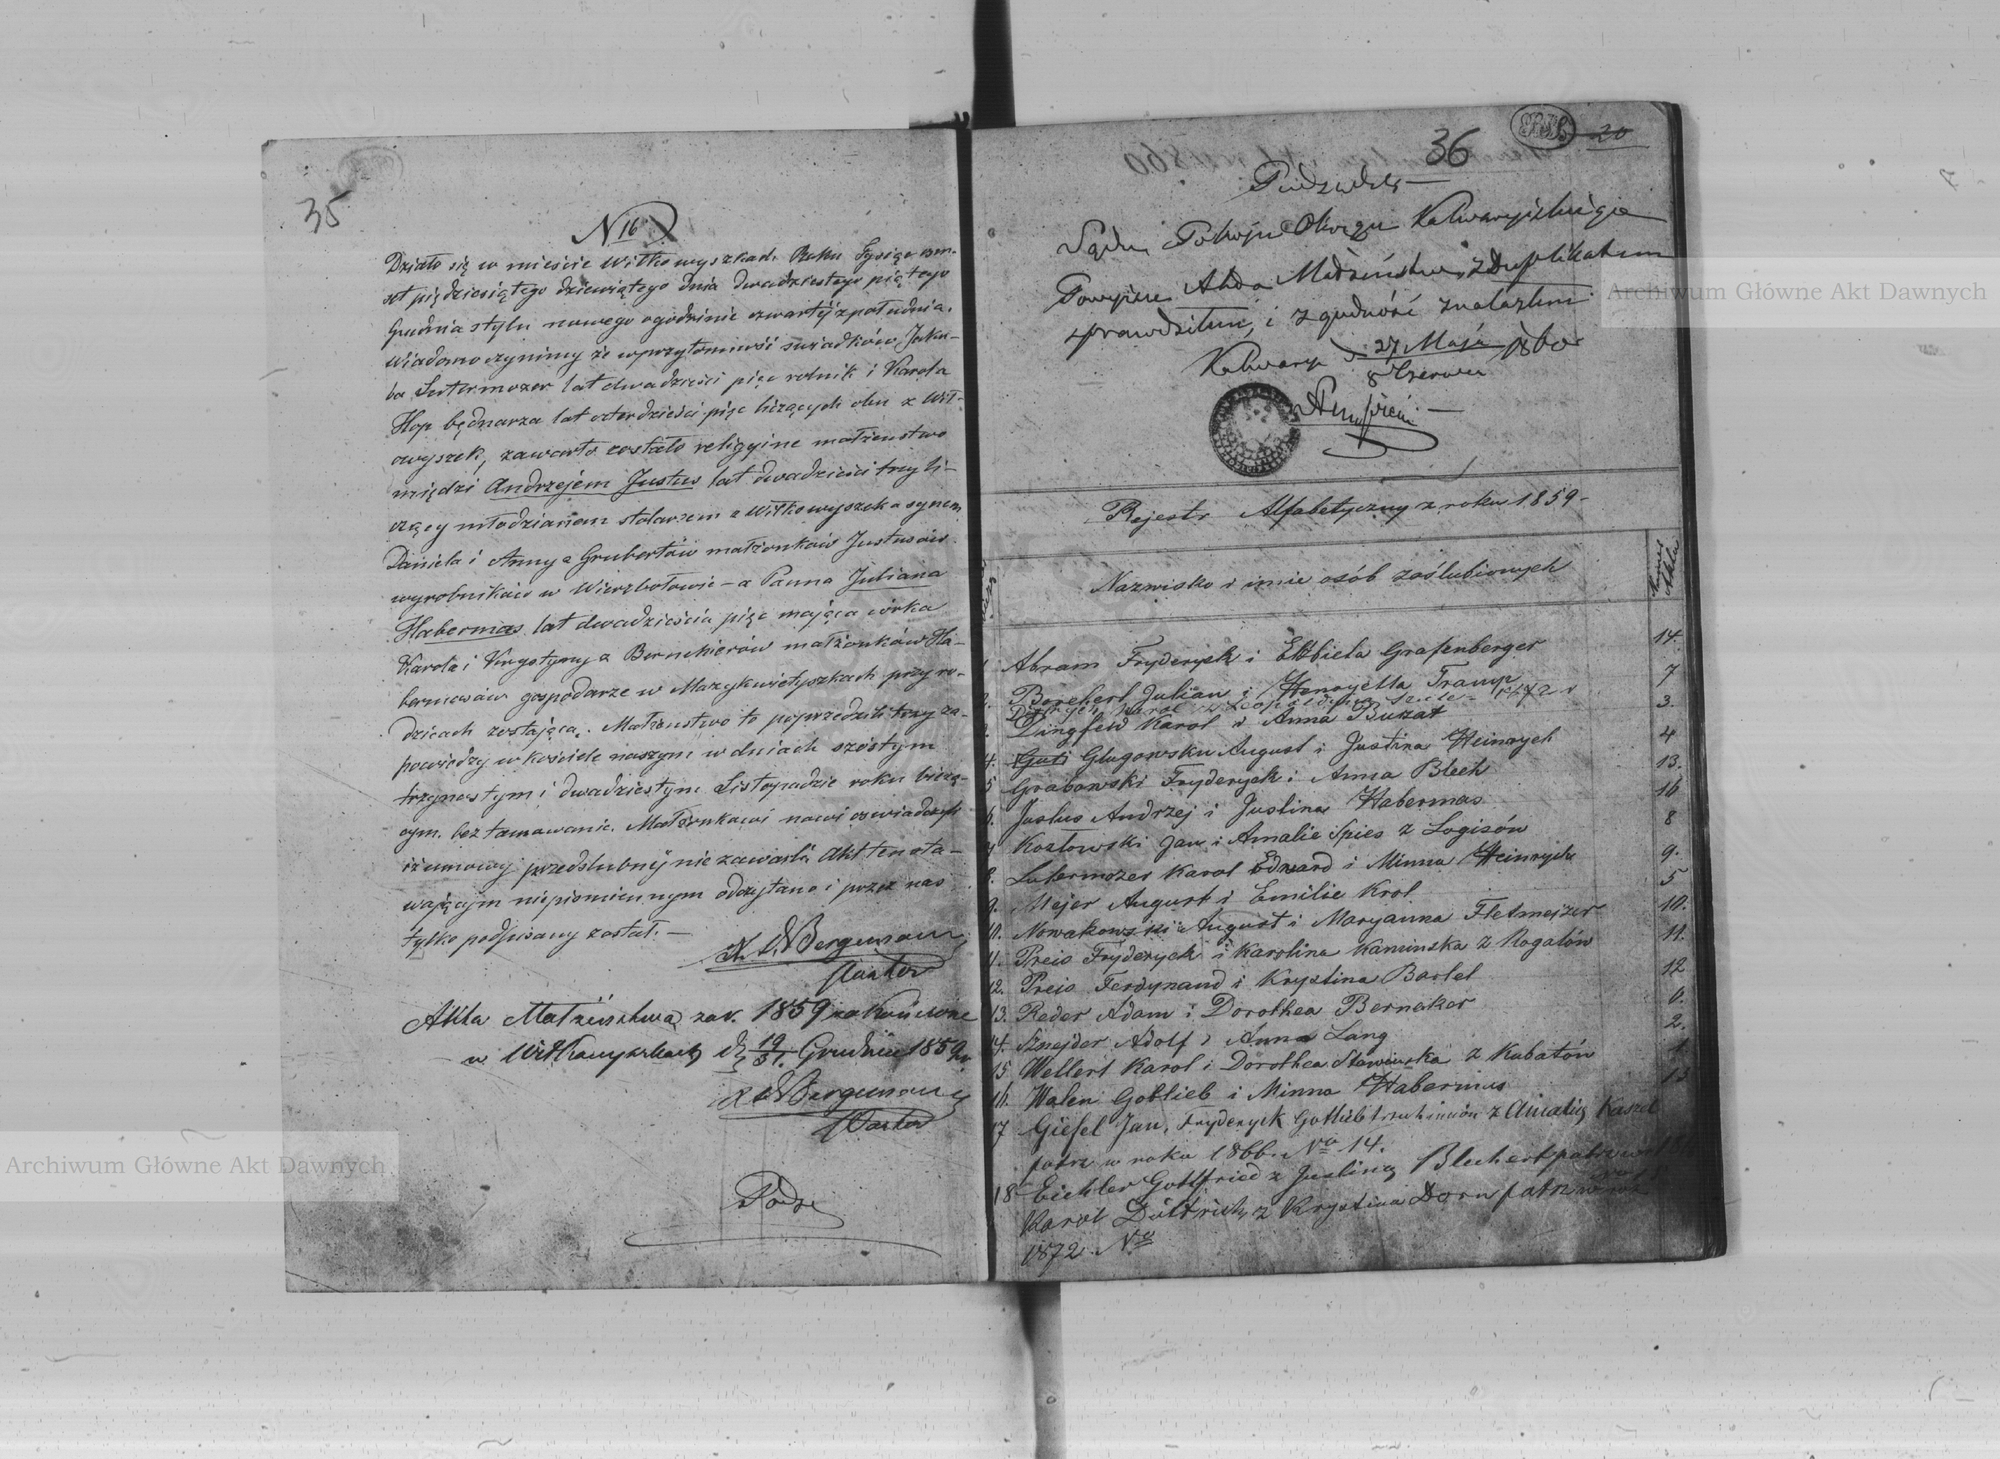 35
N 16
Działo się w mieście Wiłkowyszkach Roku Tysiąc osm-
set pięćdziesiątego dziewiątego dnia dwudziestego piątego
Grudnia stylu nowego o godzinie czwartéj z południa.
Wiadomo czynimy że w przytomności świadków Jaku-
ba Lutermozer lat dwadzieści pięć rolnik i Karola
Hop bednarza lat czterdzieści pięć liczących obu z Wił-
owyszek, zawarto zostało religyine małżenstwo
między Andrzejem Justus lat dwadzieści trzy li-
czący młodzianem stolarzem z Wiłkowyszek a synem
Daniela i Anny z Grubertów małżonków Justusów
wyrobników w Wierzbołowie – a Panna Juliana
Habermas lat dwadzieścia pięć mająca córka
Karola i Krystyny z Bernekierów małżonków Ha-
bermasów gospodarze w Mazykwietyszkach przy ro-
dzicach zostającą. Małżenstwo to poprzedzili trzy za-
powiedzy w kościele naszym w dniach szóstym
trzynastym i dwudziestym Listopadzie roku bieżą-
cym. bez tamowanie. Małżonkowi nowi oswiadczyli
iż umowy przedślubnéj nie zawarli. Akt ten sta-
wającym niepismiennym odczytano i przez nas
tylko podpisany został. —
Bergmann
Pastor
Akta Małżeństwa za r. 1859 zakończone
w Wiłkowyszkach d. 19/31. Grudnia 1859 r.
Bergmann
Pastor
36
20
Sądu Pokoju Okręgu Kalwaryiskiego
Powyższe Akta Małżeństwa z Duplikatem
sprawdziłem i zgodność znalazłem
Kalwarya d. 27 Maja 1860
8 Czerwca
Rejestr Alfabetyczny z roku 1859 –
Nazwisko i imie osób zaślubionych
Abram Fryderyck i Elżbieta Grafenberger 14.
Borchert Julian i Henryetta Tramp 7
Dingfeld Karol i Anna Buzat 3.
4. Glugowsku August i Justina Heinrych 4
5 Grabowski Fryderyck i Anna Blech 13.
6. Justus Andrzej i Justina Habermas 16
7 Kozłowski Jan i Amalie Spies z Logisów 8
8. Lutermozer Karol Edward i Minna Heinrych 9.
9. Mejer August i Emilie Krol 5
10. Nowakowski August i Maryanna Fletmejzer 10.
11. Preis Fryderyck i Karolina Kaminska z Rogalów 11.
12. Preis Ferdynand i Krystina Bartel 12
13. Reder Adam i Dorothea Berneker 6.
14. Sznejder Adolf i Anna Lang 2.
15 Wellert Karol i Dorothea Stawinska z Kubatów 1
16. Walen Gotlieb i Minna Habermas 15
17 Giesel Jan, Fryderyck Gottlieb z Amalią Kaszel
patrz w roku 1866. No 14.
18 Eichler Gottfried z Justiną Blechert patrz
Karol Dittrich z Krystina Dorn patrz
1872 No
Archiwum Główne Akt Dawnych
Archiwum Główne Akt Dawnych